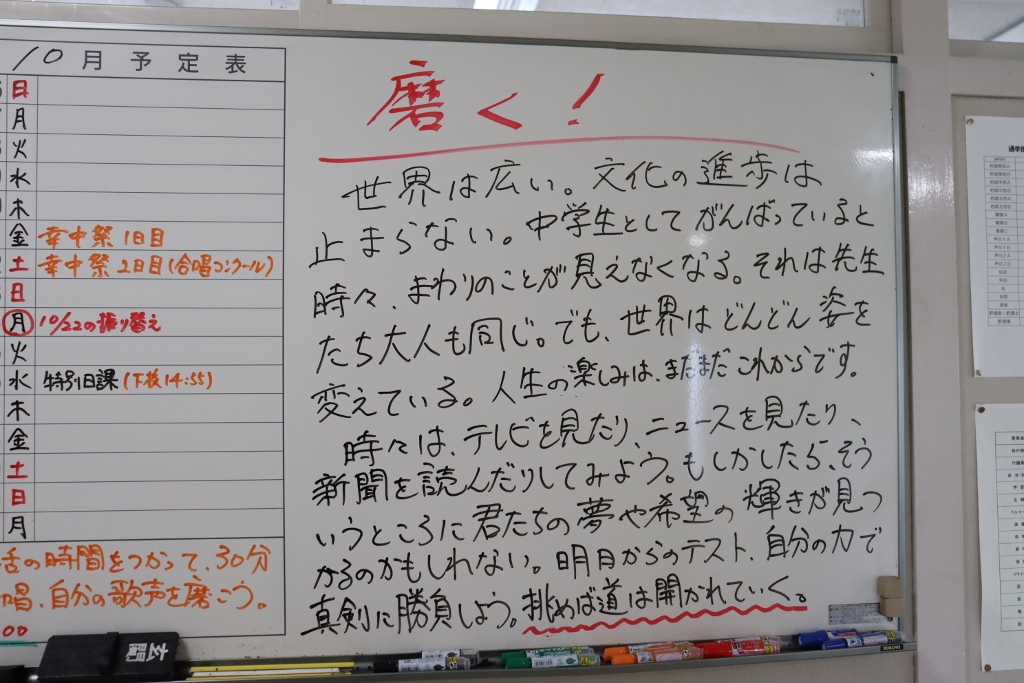 10月予定表
日
月
火
水
木
金 幸中祭1日目
土 幸中祭2日目(合唱コンクール)
日
月 10/22の振り替え
火
水 特別日課(下校14:55)
木
金
土
日
月
活の時間をつかって、30分
唱、自分の歌声を磨こう。
00
磨く!
世界は広い。文化の進歩は
止まらない。中学生としてがんばっていると
時々、まわりのことが見えなくなる。それは先生
たち大人も同じ。でも、世界はどんどん姿を
変えている。人生の楽しみは、まだまだこれからです。
時々は、テレビを見たり、ニュースを見たり、
新聞を読んだりしてみよう。もしかしたら、そう
いうところに君たちの夢や希望の輝きが見つ
かるのかもしれない。明日からのテスト、自分の力で
真剣に勝負しよう。挑めば道は開かれていく。
玄関
KOKUYO